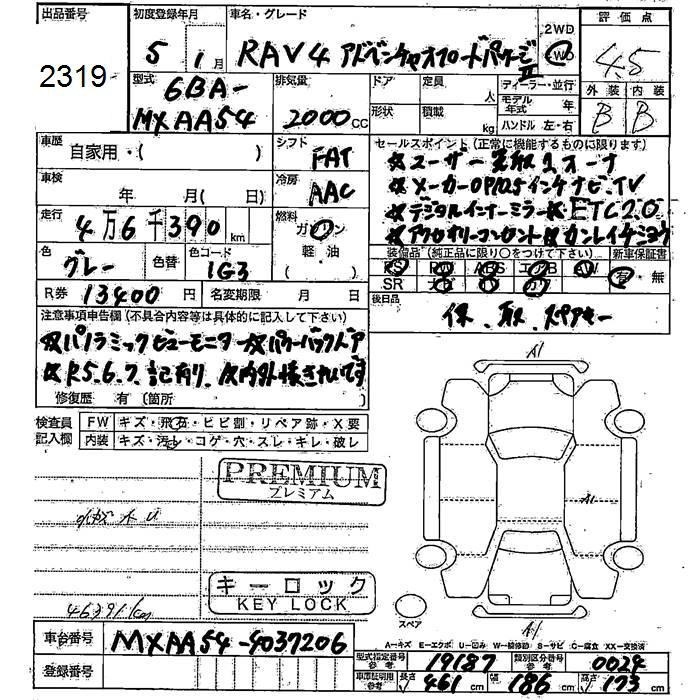 出品番号 初度登録年月 車名・グレード 2WD 評価点
2319 5年 1月 RAV4 アドベンチャーオフロードパッケージII 4WD 4.5
型式 6BA-MXAA54 排気量 2000cc ドア 定員 人 ディーラー・並行 外装 内装
形状 積載 kg モデル年式 年 B B
ハンドル 左・右
車歴 自家用・( ) シフト FAT セールスポイント(正常に機能するものに限ります)
☆ユーザー買取 1オーナ
車検 年 月(日) 冷房 AAC ☆メーカーOP10.5インチナビ.TV
☆デジタルインナーミラー☆ETC2.0
走行 4万6千390km 燃料 ガソリン 軽・油 ☆アクセサリーコンセント☆カンレイチシヨウ
色 グレー 色替 色コード 1G3 装備品(純正品に限り○をつけて下さい) 新車保証書
PS PW ABS エアB AW 有・無
SR ナビ TV カワ
R券 13400円 名変期限 月 日 後日品
保.取.スペアキー
注意事項申告欄(不具合内容等は具体的に記入して下さい)
☆パノラミックビューモニター☆パワーバックドア
☆R5.6.7.記有り.☆内外装きれいです
修復歴:有( )箇所
検査員記入欄 FW キズ・飛石・ヒビ割・リペア跡・X要
内装 キズ・汚レ・コゲ・穴・スレ・キレ・破レ
PREMIUM
プレミアム
キーロック
KEY LOCK
46391km
A1
A1
A1
スペア
A=キズ E=エクボ U=凹み W=補修跡 S=サビ C=腐食 XX=交換済
車台番号 MXAA54-4037206
型式指定番号 参考 19187 類別区分番号 参考 0024
登録番号
車庫証明用 参考 長さ 461cm 幅 186cm 高さ 173cm